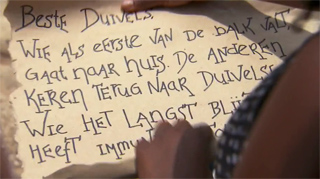 BESTE DUIVELS,
WIE ALS EERSTE VAN DE BALK VALT,
GAAT NAAR HUIS. DE ANDEREN
KEREN TERUG NAAR
WIE HET LANGST
HEEFT